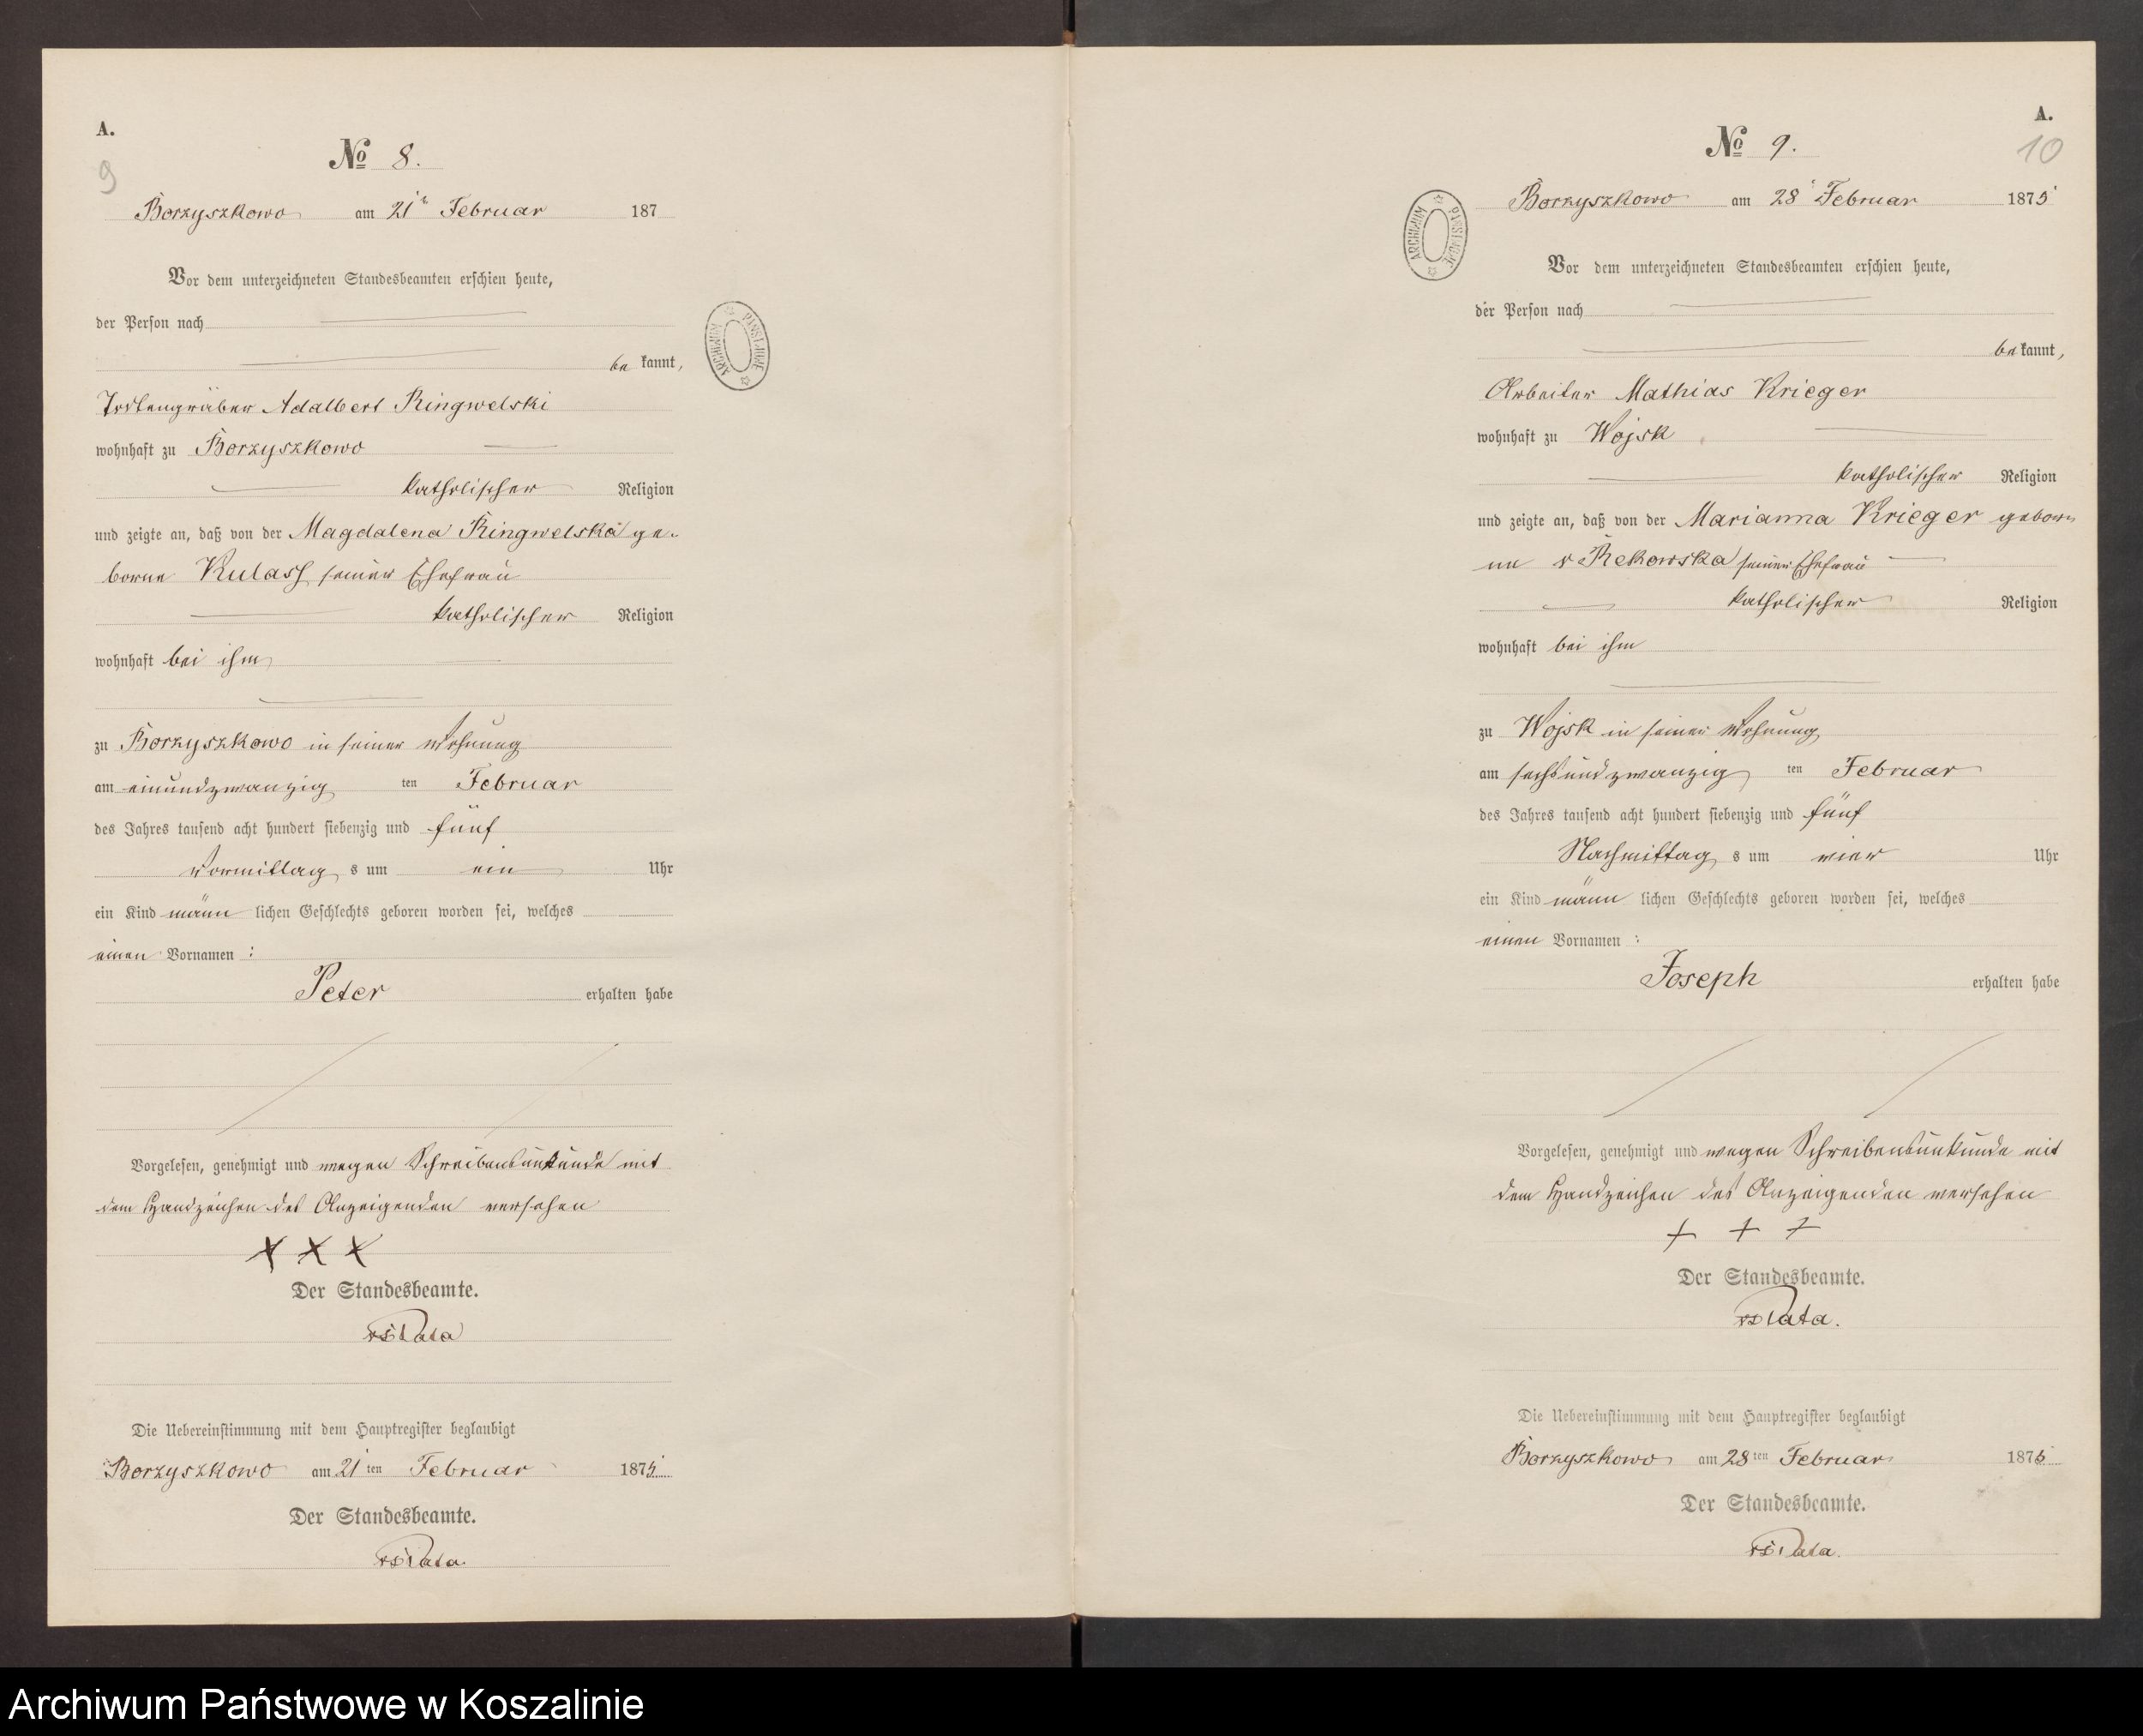 A.
9
No 8.
Borzyszkowo am 21 Februar 187
Vor dem unterzeichneten Standesbeamten erschien heute,
der Person nach
be kannt,
Todtengräber Adalbert Ringwelski
wohnhaft zu Borzyszkowo
katholischer Religion
und zeigte an, daß von der Magdalena Ringwelska ge-
borne Kulass seiner Ehefrau
katholischer Religion
wohnhaft bei ihm
zu Borzyszkowo in seiner Wohnung
am einundzwanzig ten Februar
des Jahres tausend acht hundert siebenzig und fünf
Vormittag s um ein Uhr
ein Kind männ lichen Geschlechts geboren worden sei, welches
einen Vornamen :
Peter erhalten habe
Vorgelesen, genehmigt und wegen Schreibensunkunde mit
dem Handzeichen des Anzeigenden versehen
X X X
Der Standesbeamte.
Die Uebereinstimmung mit dem Hauptregister beglaubigt
Borzyszkowo am 21 ten Februar 1875
Der Standesbeamte.
ARCHIWUM PAŃSTWOWE
A.
10
No 9.
Borzyszkowo am 28 Februar 1875
Vor dem unterzeichneten Standesbeamten erschien heute,
der Person nach
be kannt,
Arbeiter Mathias Krieger
wohnhaft zu Wojsk
katholischer Religion
und zeigte an, daß von der Marianna Krieger gebor
ne v Rekowska seiner Ehefrau
katholischer Religion
wohnhaft bei ihm
zu Wojsk in seiner Wohnung
am sechsundzwanzig ten Februar
des Jahres tausend acht hundert siebenzig und fünf
Nachmittag s um vier Uhr
ein Kind männ lichen Geschlechts geboren worden sei, welches
einen Vornamen :
Joseph erhalten habe
Vorgelesen, genehmigt und wegen Schreibensunkunde mit
dem Handzeichen des Anzeigenden versehen
+ + +
Der Standesbeamte.
Die Uebereinstimmung mit dem Hauptregister beglaubigt
Borzyszkowo am 28 ten Februar 1875
Der Standesbeamte.
ARCHIWUM PAŃSTWOWE
Archiwum Państwowe w Koszalinie